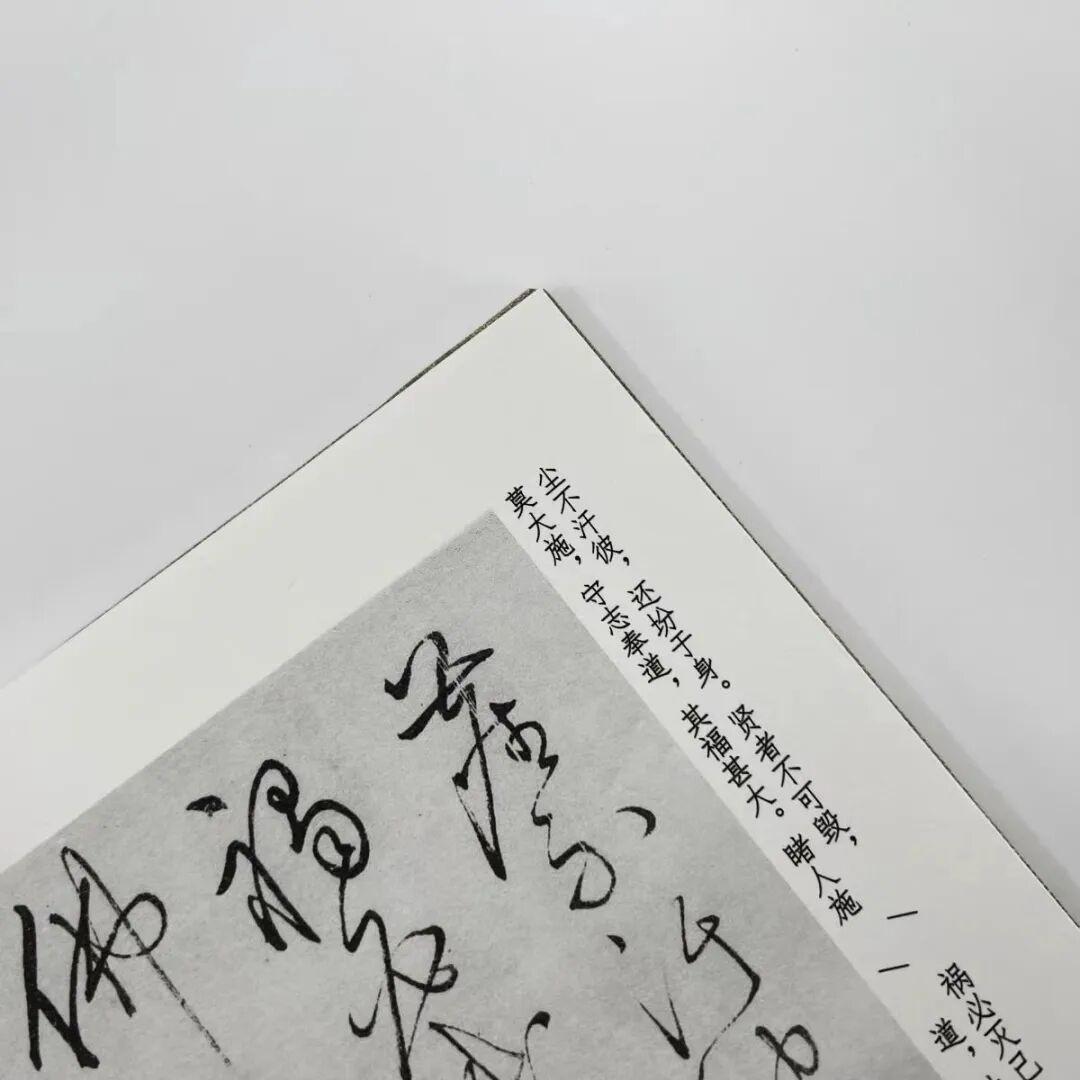 尘不汗彼，还坋于身。贤者不可毁，祸必灭己
莫大施，守志奉道，其福甚大。睹人施道，
塵不汙
禍
佛